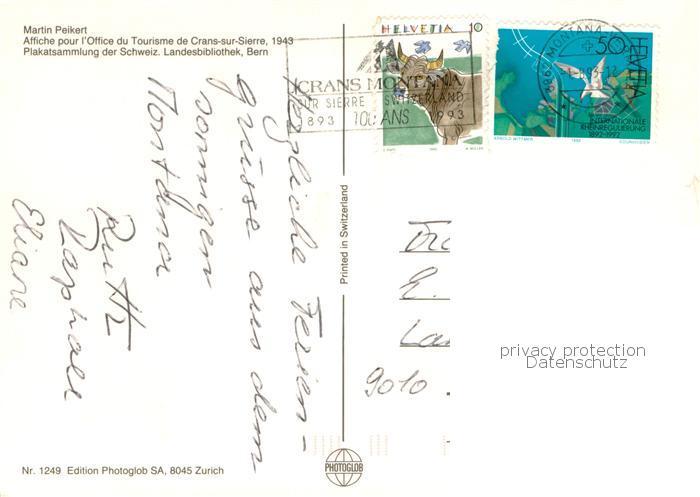 Martin Peikert
Affiche pour l'Office du Tourisme de Crans-sur-Sierre, 1943
Plakatsammlung der Schweiz. Landesbibliothek, Bern
HELVETIA 10
CRANS MONTANA
SUR SIERRE SWITZERLAND
1893 100 ANS 1993
50 HELVETIA
INTERNATIONALE
RHEINREGULIERUNG
1892-1992
ARNOLD WITTMER 1992 COURVOISIER
3962 MONTANA
Herzliche Ferien-
grüsse aus dem
sonnigen
Montana
Ruth
Raphael
Eliane
Printed in Switzerland
E.
9010
privacy protection
Datenschutz
PHOTOGLOB
Nr. 1249 Edition Photoglob SA, 8045 Zurich